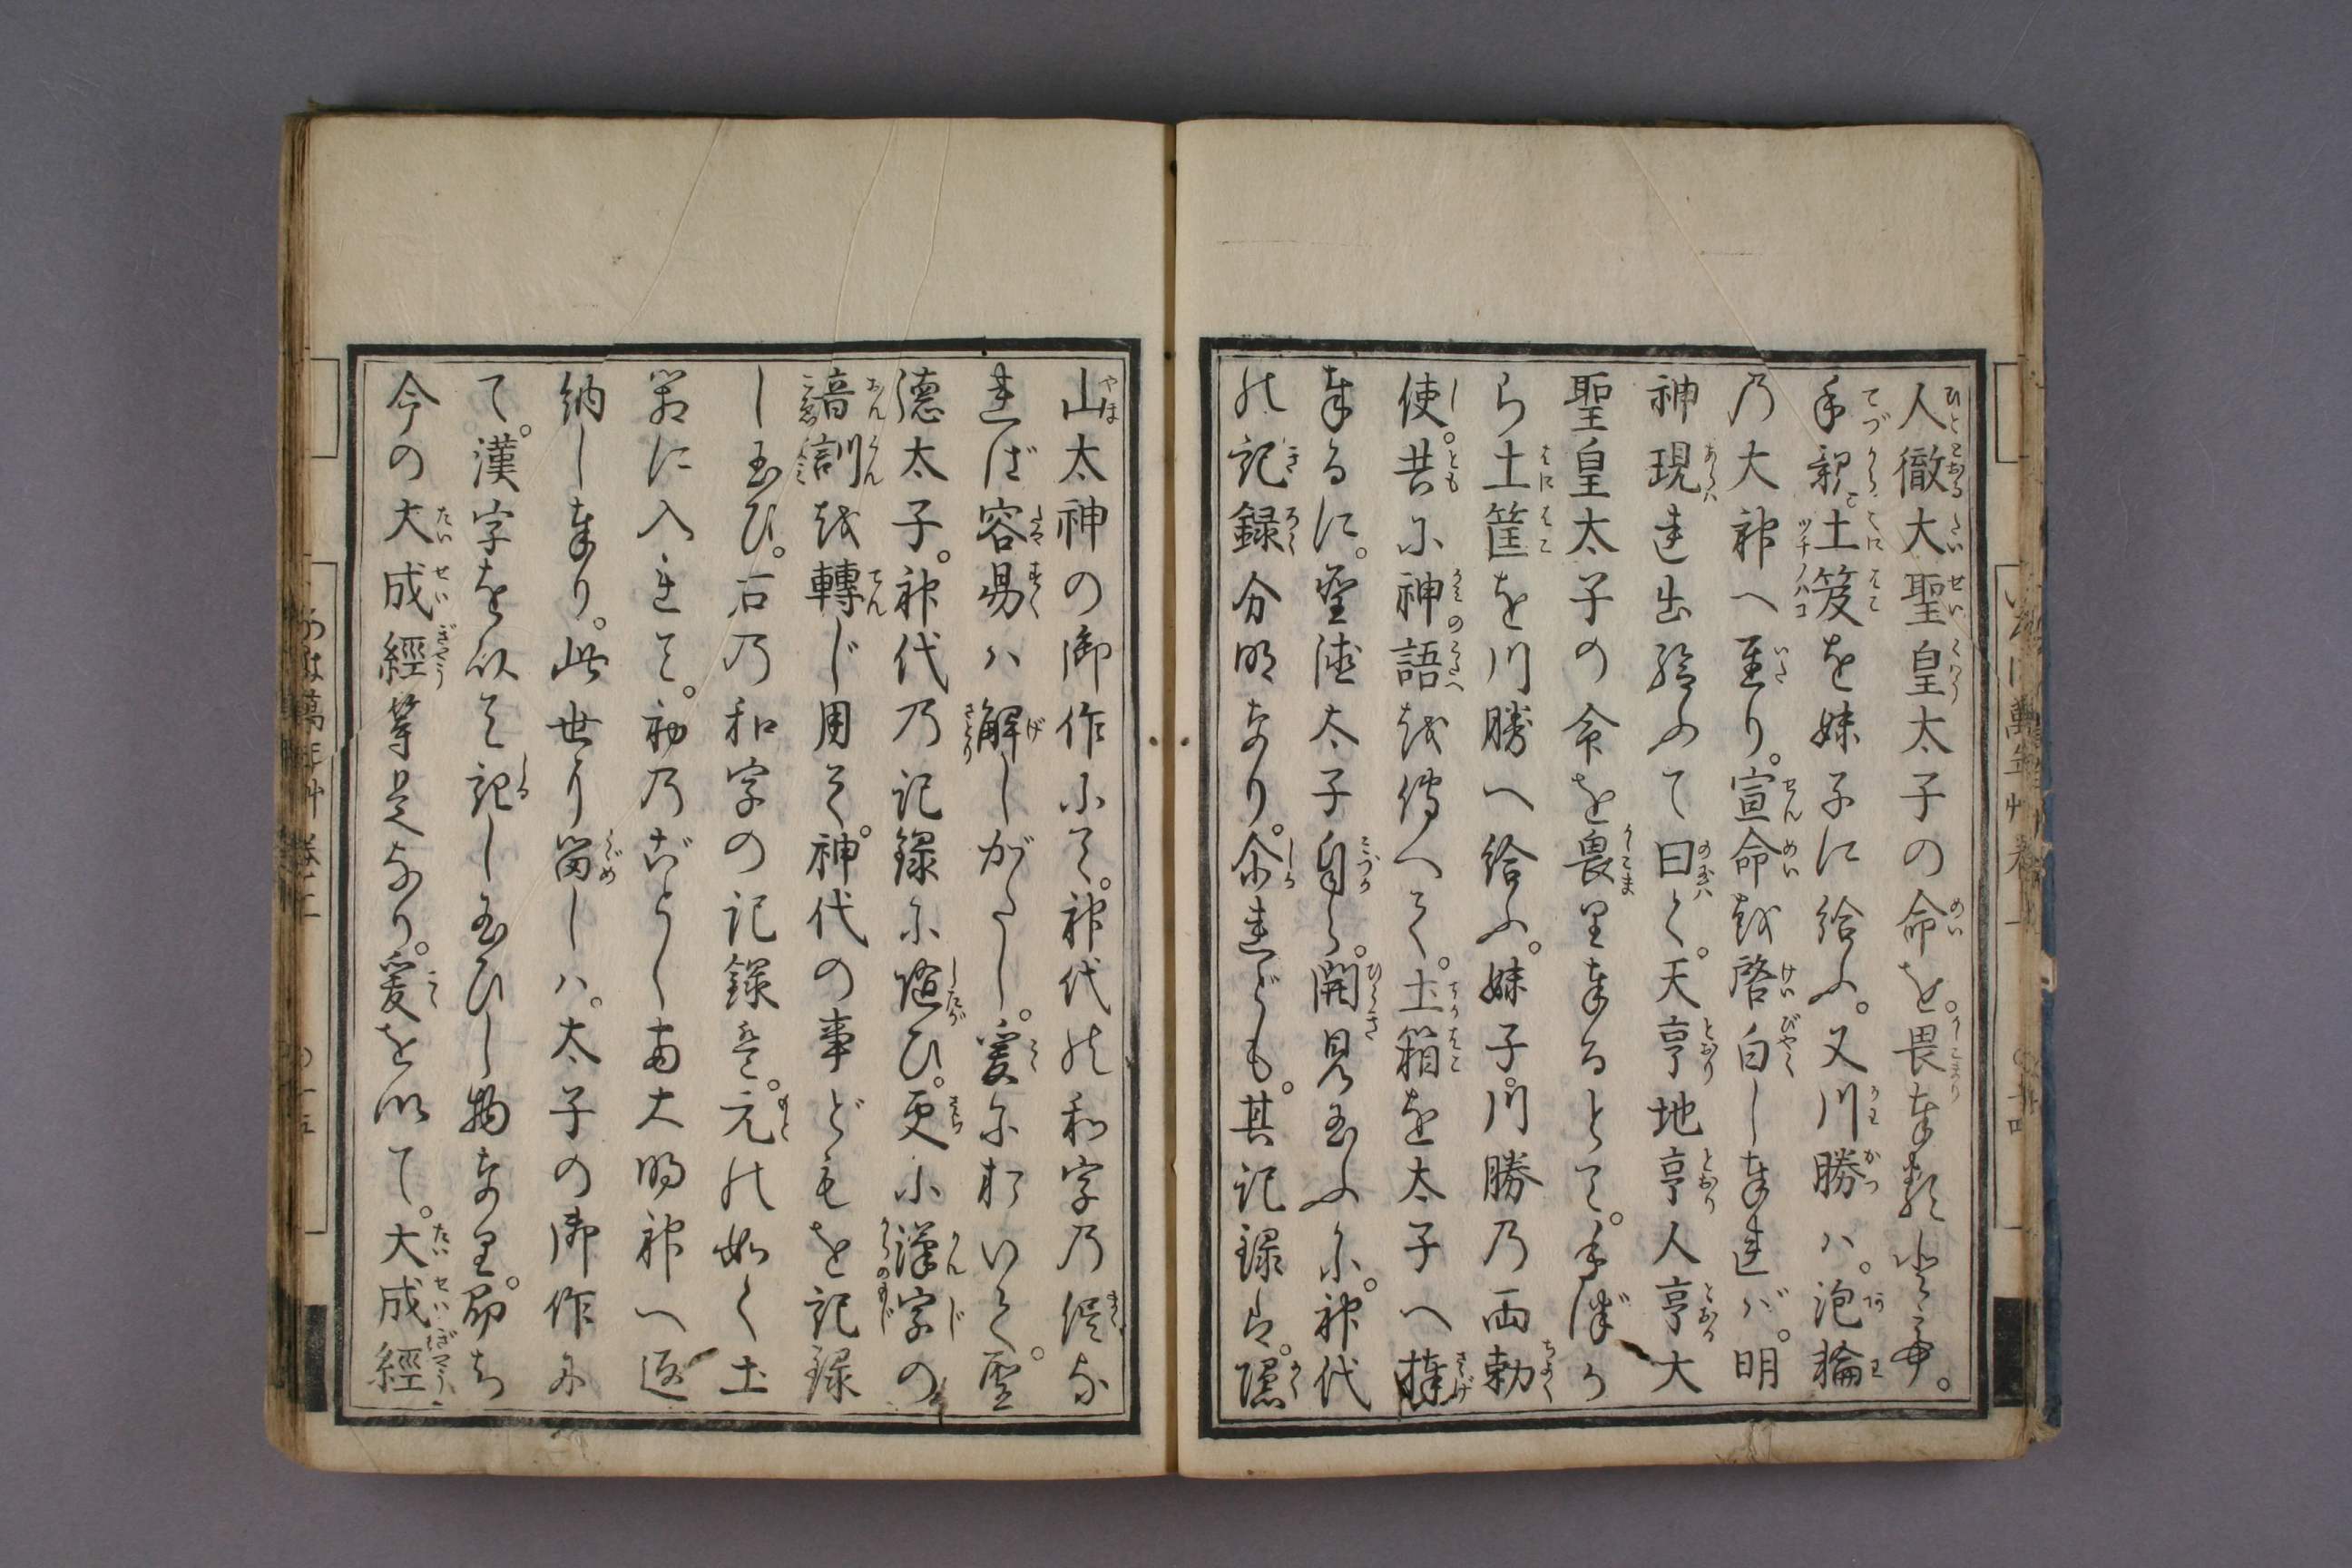 人徹大聖皇太子の命を。畏奉敬。
手親。土笈を妹子に給ふ。又川勝ハ。泡輪
乃大神へ至り。宣命越啓白し奉連バ。明
神現連出給ふて曰く。天亨地亨人亨大
聖皇太子の命を畏里奉るとて。手づか
ら土筐を川勝へ給ふ。妹子川勝乃両勅
使。共尓神語越傳へて。土箱を太子へ捧
奉るに。聖徳太子自ら。開見玉ふ尓。神代
能記録分明なり。尓連ども。其記録ハ。隠
山太神の御作尓て。神代能和字乃侭な
連ば容易ハ解しがたし。爰尓於いて。聖
徳太子。神代乃記録尓随ひ。更尓漢字の
諳訓越轉じ用て。神代の事どもを記録
し玉ひ。右乃和字の記録を。元能如く土
箱に入連て。初乃ごとく両大明神へ返
納し奉り。此世り留しハ。太子の御作尓
て。漢字を以て記し玉ひし物な里。即ち
今の大成經等是なり。爰を以て。大成經